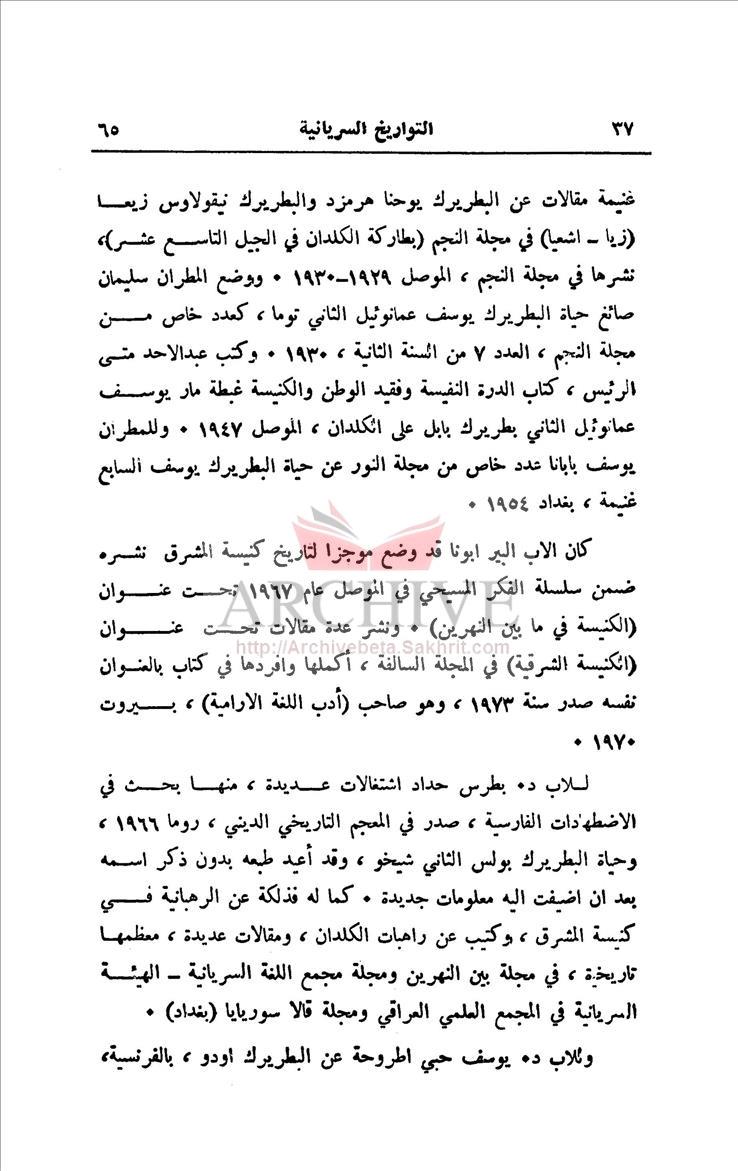 ٣٧ التواريخ السريانية ٦٥
غنيمة مقالات عن البطريرك يوحنا هرمزد والبطريرك نيقولاوس زيعـــا
(زيا ــ اشعيا) في مجلة النجم (بطاركة الكلدان في الجيل التاســـع عشـــر)،
نشرها في مجلة النجم ، الموصل ١٩٢٩ــ١٩٣٠ ٠ ووضع المطران سليمان
صائغ حياة البطريرك يوسف عمانوئيل الثاني توما ، كعدد خاص مـــــن
مجلة النجم ، العدد ٧ من السنة الثانية ، ١٩٣٠ ٠ وكتب عبدالاحد متـــى
الرئيس ، كتاب الدرة النفيسة وفقيد الوطن والكنيسة غبطة مار يوســـف
عمانوئيل الثاني بطريرك بابل على الكلدان ، الموصل ١٩٤٧ ٠ وللمطران
يوسف بابانا عدد خاص من مجلة النور عن حياة البطريرك يوسف السابع
غنيمة ، بغداد ١٩٥٤ ٠
كان الاب البير ابونا قد وضع موجزا لتاريخ كنيسة المشرق نشـــره
ضمن سلسلة الفكر المسيحي في الموصل عام ١٩٦٧ تحـــت عنـــوان
ARCHIVE
(الكنيسة في ما بين النهرين) ٠ ونشر عدة مقالات تحـــت عنـــــوان
http://Archivebeta.Sakhrit.com
(الكنيسة الشرقية) في المجلة السالفة ، أكملها وافردها في كتاب بالعنوان
نفسه صدر سنة ١٩٧٣ ، وهو صاحب (أدب اللغة الارامية) ، بـــيروت
١٩٧٠ ٠
لـــلاب د٠ بطرس حداد اشتغالات عـــديدة ، منهـــا بحـــث في
الاضطهادات الفارسية ، صدر في المعجم التاريخي الديني ، روما ١٩٦٦ ،
وحياة البطريرك بولس الثاني شيخو ، وقد أعيد طبعه بدون ذكر اســـمه
بعد ان اضيفت اليه معلومات جديدة ٠ كما له فذلكة عن الرهبانية فـــــي
كنيسة المشرق ، وكتيب عن راهبات الكلدان ، ومقالات عديدة ، معظمهـا
تاريخية ، في مجلة بين النهرين ومجلة مجمع اللغة السريانية ــ الهيئـــة
السريانية في المجمع العلمي العراقي ومجلة قالا سوريايا (بغداد) ٠
وللاب د٠ يوسف حبي اطروحة عن البطريرك اودو ، بالفرنسية،